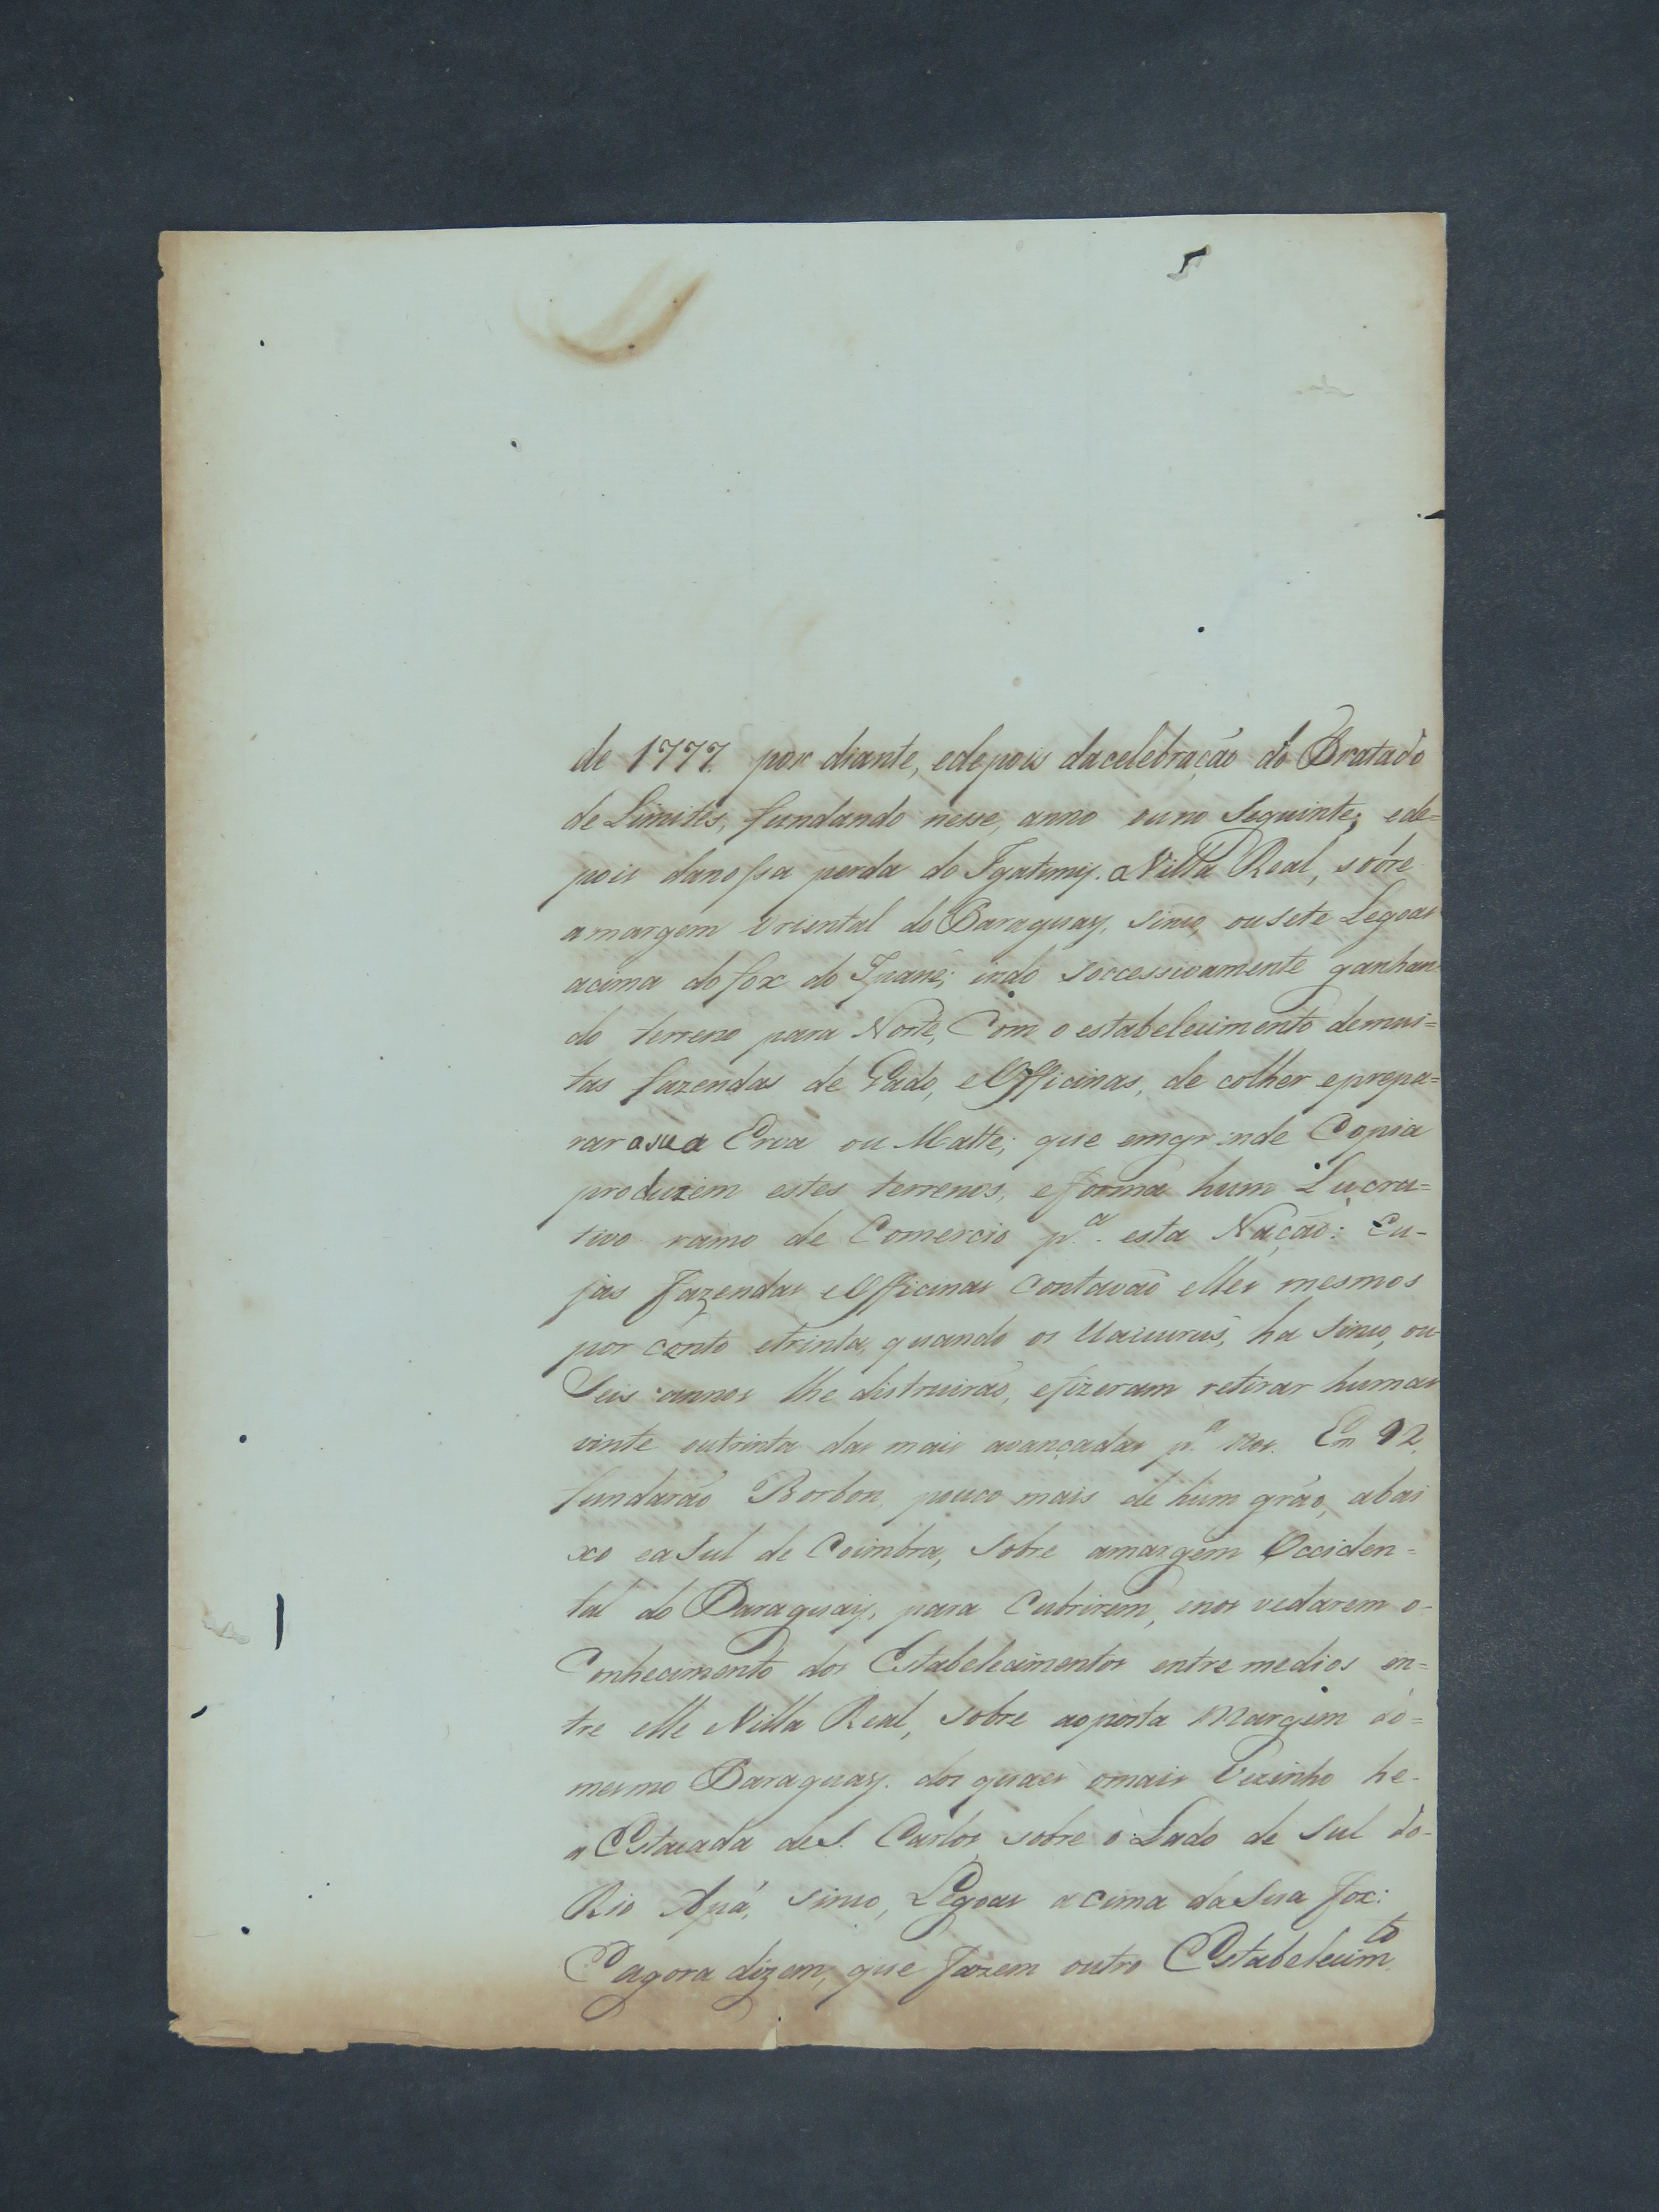 de 1777. por diante, edepois dacelebração do Tratado
de Limites, fundando nesse, anno ouno Seguinte; ede=
pois danossa perda do Igatimy. a Villa Real, sobre
amargem Oriental do Paraguay, Sinco, ousete Legoas
acima do fox do Ipané; indo soccessivamente ganhan
do terreno para Norte, Com o estabelecimento demui=
tas fazendas de Gado, e Officinas, de colher eprepa=
rar asua Erva ou Matte; que emgrande Copia
produzem estes terrenos, eforma hum Lucra=
tivo ramo de Comercio p.ª esta Nação: Cu-
jas Fazendas e Officinas Contavão elles mesmos
por cento etrinta, quando os Uaicurús, ha Sinco, ou
Seis annos lhe distruirão, efizeram retirar humas
vinte outrinta das mais avançadas p.ª nos. Em 92.
fundarão Borbon, pouco mais de hum gráo, abai
xo eaSul de Coimbra, Sobre amargem Occiden=
tal do Paraguay, para Cubrirem, enos vedarem o-
Conhecimento dos Estabelecimentos entre medios en=
tre elle eVilla Real, sobre aoposta Margem do=
mesmo Paraguay. dos quaes omais Vezinho he-
a Estacada deS. Carlos sobre o Lado de Sul do-
Rio Apá, sinco, Legoas acima daSua Fox:
E agora dizem; que Fazem outro Estabelecim.to